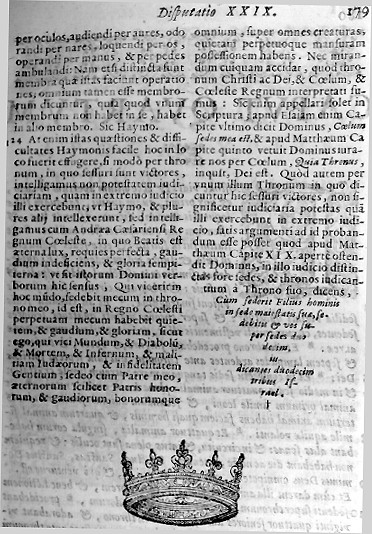 Disputatio XXIX. 179
per oculos, audiendi per aures, odo
randi per nares, loquendi per os,
operandi per manus, & per pedes
ambulandi: Nam etsi distincta sunt
membra quæ istas faciunt operatio
nes, omnium tamen esse membro-
rum dicuntur, quia quod vnum
membrum non habet in se, habet
in alio membro. Sic Haymo.
24 At enim istas quæstiones & diffi-
cultates Haymonis facile hoc in lo
co fuerit effugere, si modo per thro
num, in quo sessuri sunt victores,
intelligamus non potestatem iudi-
ciariam, quam in extremo iudicio
illi exercebunt, vt Haymo, & plu-
res alij intellexerunt, sed intelli-
gamus cum Andræa Cæsariensi Re
gnum Cœleste, in quo Beatis est
æterna lux, requies perfecta, gau-
dium indeficiens, & gloria sempi-
terna: vt sit istorum Domini ver-
borum hic sensus, Qui vicerit in
hoc mundo, sedebit mecum in thro-
no meo, id est, in Regno Cœlesti
perpetuam mecum habebit quie-
tem, & gaudium, & gloriam, sicut
ego, qui vici Mundum, & Diabolū,
& Mortem, & Infernum, & mali-
tiam Iudæorum, & infidelitatem
Gentium, sedeo cum Patre meo,
æternorum scilicet Patris hono-
rum, & gaudiorum, bonorumque
omnium, super omnes creaturas,
quietam perpetuoque mansuram
possessionem habens. Nec miran-
dum cuiquam accidat, quod thro-
num Christi ac Dei, & Cœlum, &
Cœleste Regnum interpretati su-
mus: Sic enim appellari solet in
Scriptura, apud Esaiam enim Ca-
pite vltimo dicit Dominus, Cœlum
sedes mea est, & apud Matthæum Ca
pite quinto vetuit Dominus iura-
re nos per Cœlum, Quia Thronus,
inquit, Dei est. Quod autem per
vnum illum Thronum in quo di-
cuntur hic sessuri victores, non si-
gnificetur iudiciaria potestas quā
illi exercebunt in extremo iudi-
cio, satis argumenti ad id proban-
dum esse posset quod apud Mat-
thæum Capite XIX. aperte osten-
dit Dominus, in illo iudicio distin-
ctas fore sedes, & thronos iudican-
tium à Throno suo, dicens,
Cùm sederit Filius hominis
in sede maiestatis suæ, se-
debitis & vos su-
per sedes duo
decim,
iu-
dicantes duodecim
tribus Is-
rael.
†